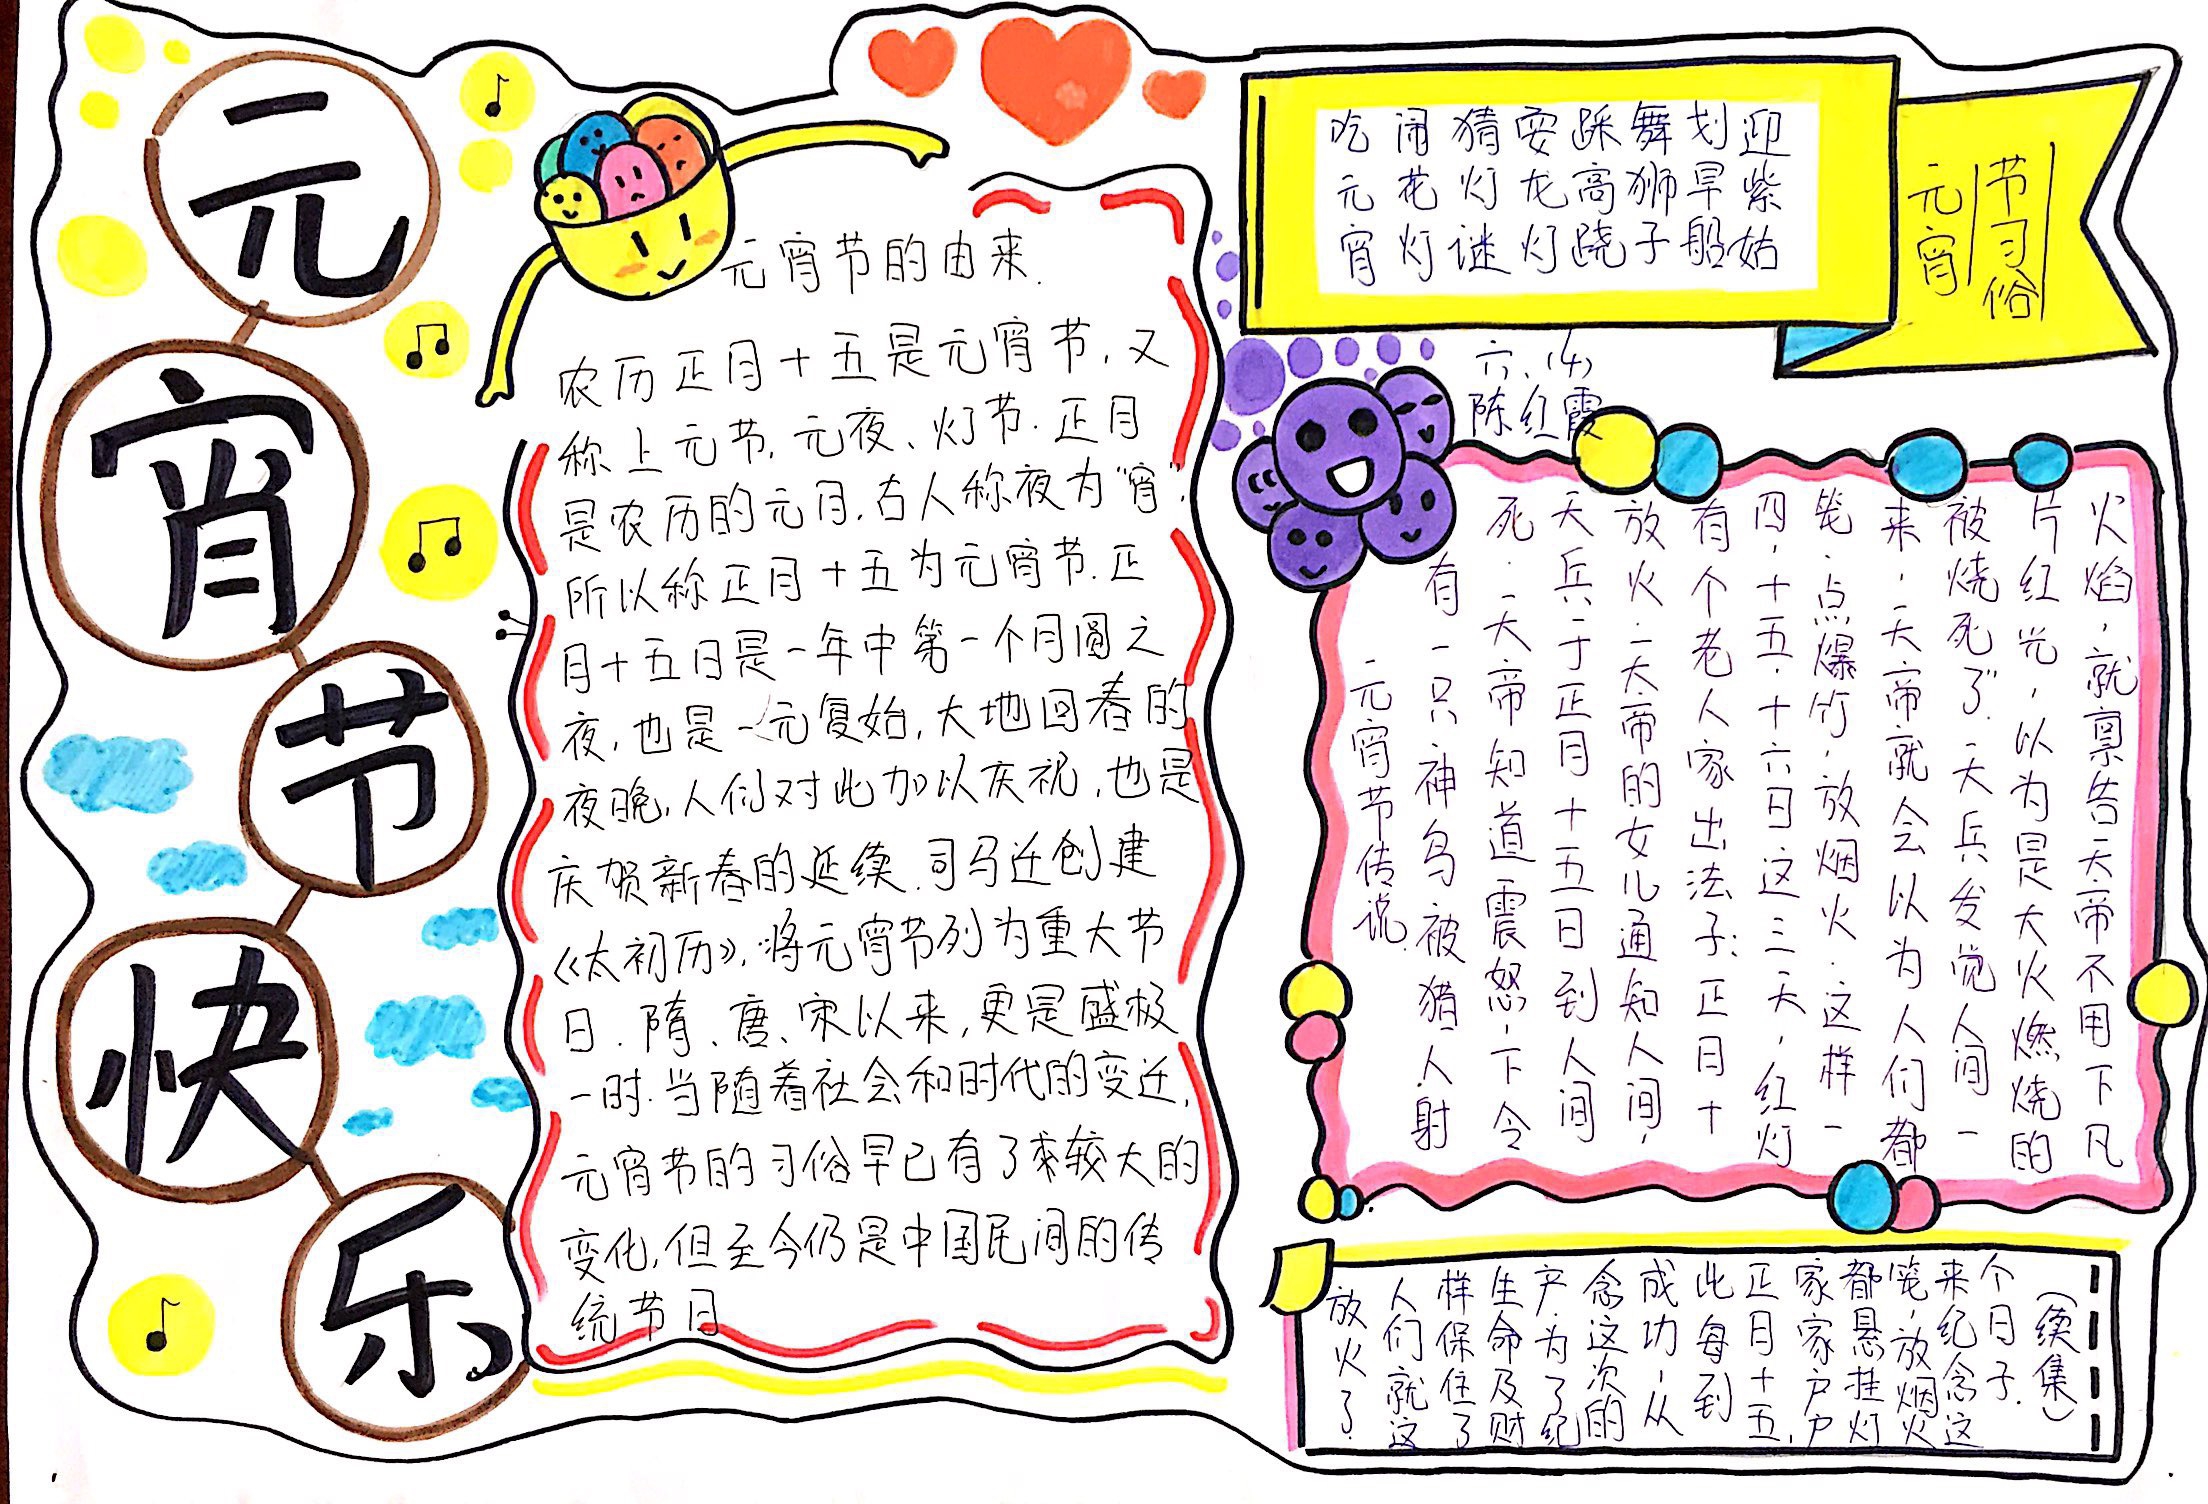 元宵节快乐
元宵节的由来.
农历正月十五是元宵节,又
称上元节,元夜、灯节.正月
是农历的元月,古人称夜为“宵”,
所以称正月十五为元宵节.正
月十五日是一年中第一个月圆之
夜,也是一元复始,大地回春的
夜晚,人们对此加以庆祝,也是
庆贺新春的延续.司马迁创建
《太初历》,将元宵节列为重大节
日.隋、唐、宋以来,更是盛极
一时.当随着社会和时代的变迁,
元宵节的习俗早已有了较大的
变化,但至今仍是中国民间的传
统节日
元宵
节习俗
吃元宵
闹花灯
猜灯谜
耍龙灯
踩高跷
舞狮子
划早船
迎紫姑
六、(4)
陈红霞
元宵节传说.
有一只神鸟被猎人射
死.天帝知道震怒,下令
天兵于正月十五日到人间
放火.天帝的女儿通知人间,
有个老人家出法子:正月十
四,十五,十六日这三天,红灯
笼.点爆竹,放烟火.这样一
来,天帝就会以为人们都
被烧死了.天兵发觉人间一
片红光,以为是大火燃烧的
火焰,就禀告天帝不用下凡
放火了.
人们就这
样保住了
生命及财
产.为了纪
念这次的
成功,从
此每到
正月十五,
家家户户
都悬挂灯
笼,放烟火
来纪念这
个日子.
(续集)